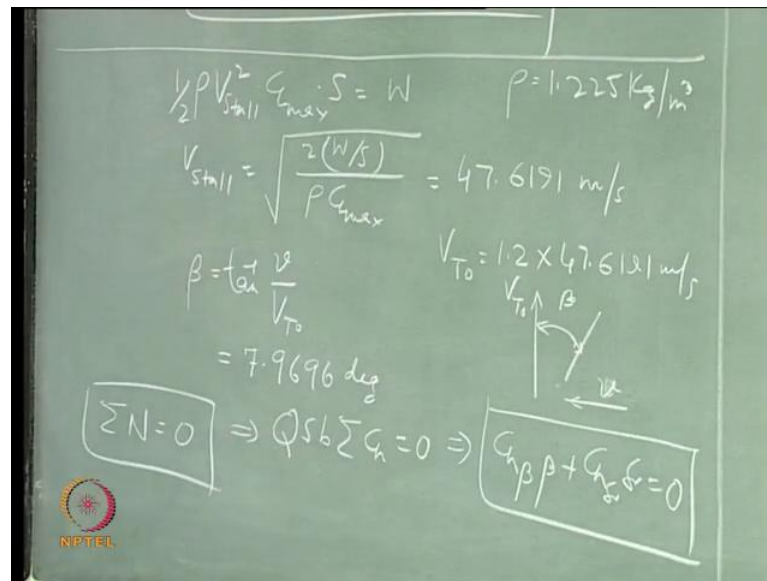 ½ρV²stall C_Lmax · S = W    ρ = 1.225 Kg/m³
Vstall = √(2(W/S) / ρC_Lmax) = 47.6191 m/s
β = tan⁻¹ v/V_T0    V_T0 = 1.2 × 47.6191 m/s
V_T0 β
= 7.9696 deg
v
ΣN = 0 ⇒ QSb ΣC_n = 0 ⇒ C_nβ β + C_nδr δr = 0
NPTEL